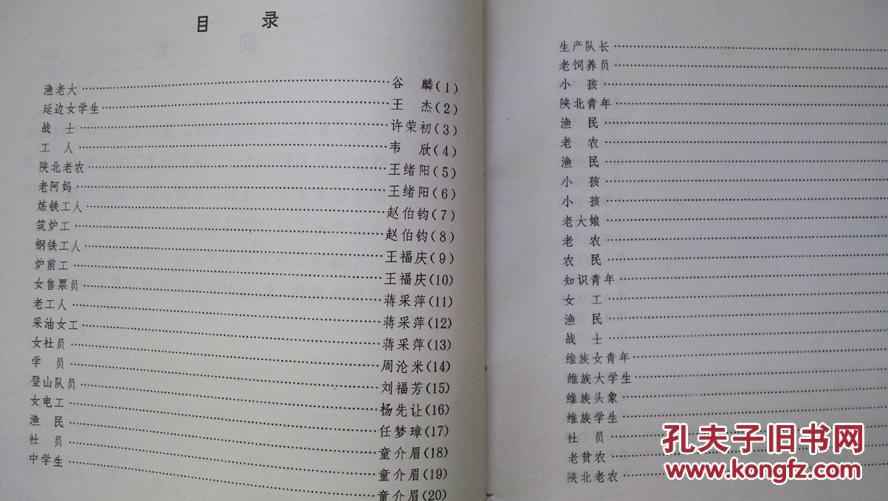 目 录
渔老大……谷 麟(1)
延边女学生……王 杰(2)
战 士……许荣初(3)
工 人……韦 欣(4)
陕北老农……王绪阳(5)
老阿妈……王绪阳(6)
炼铁工人……赵伯钧(7)
筑炉工……赵伯钧(8)
钢铁工人……王福庆(9)
炉前工……王福庆(10)
女售票员……蒋采萍(11)
老工人……蒋采萍(12)
采油女工……蒋采萍(13)
女社员……周沦米(14)
学 员……刘福芳(15)
登山队员……杨先让(16)
女电工……任梦璋(17)
渔 民……童介眉(18)
社 员……童介眉(19)
中学生……童介眉(20)
生产队长……
老饲养员……
小 孩……
陕北青年……
渔 民……
老 农……
渔 民……
小 孩……
小 孩……
老大娘……
老 农……
农 民……
知识青年……
女 工……
渔 民……
战 士……
维族女青年……
维族大学生……
维族头象……
维族学生……
社 员……
老贫农……
陕北老农……
孔夫子旧书网
www.kongfz.com